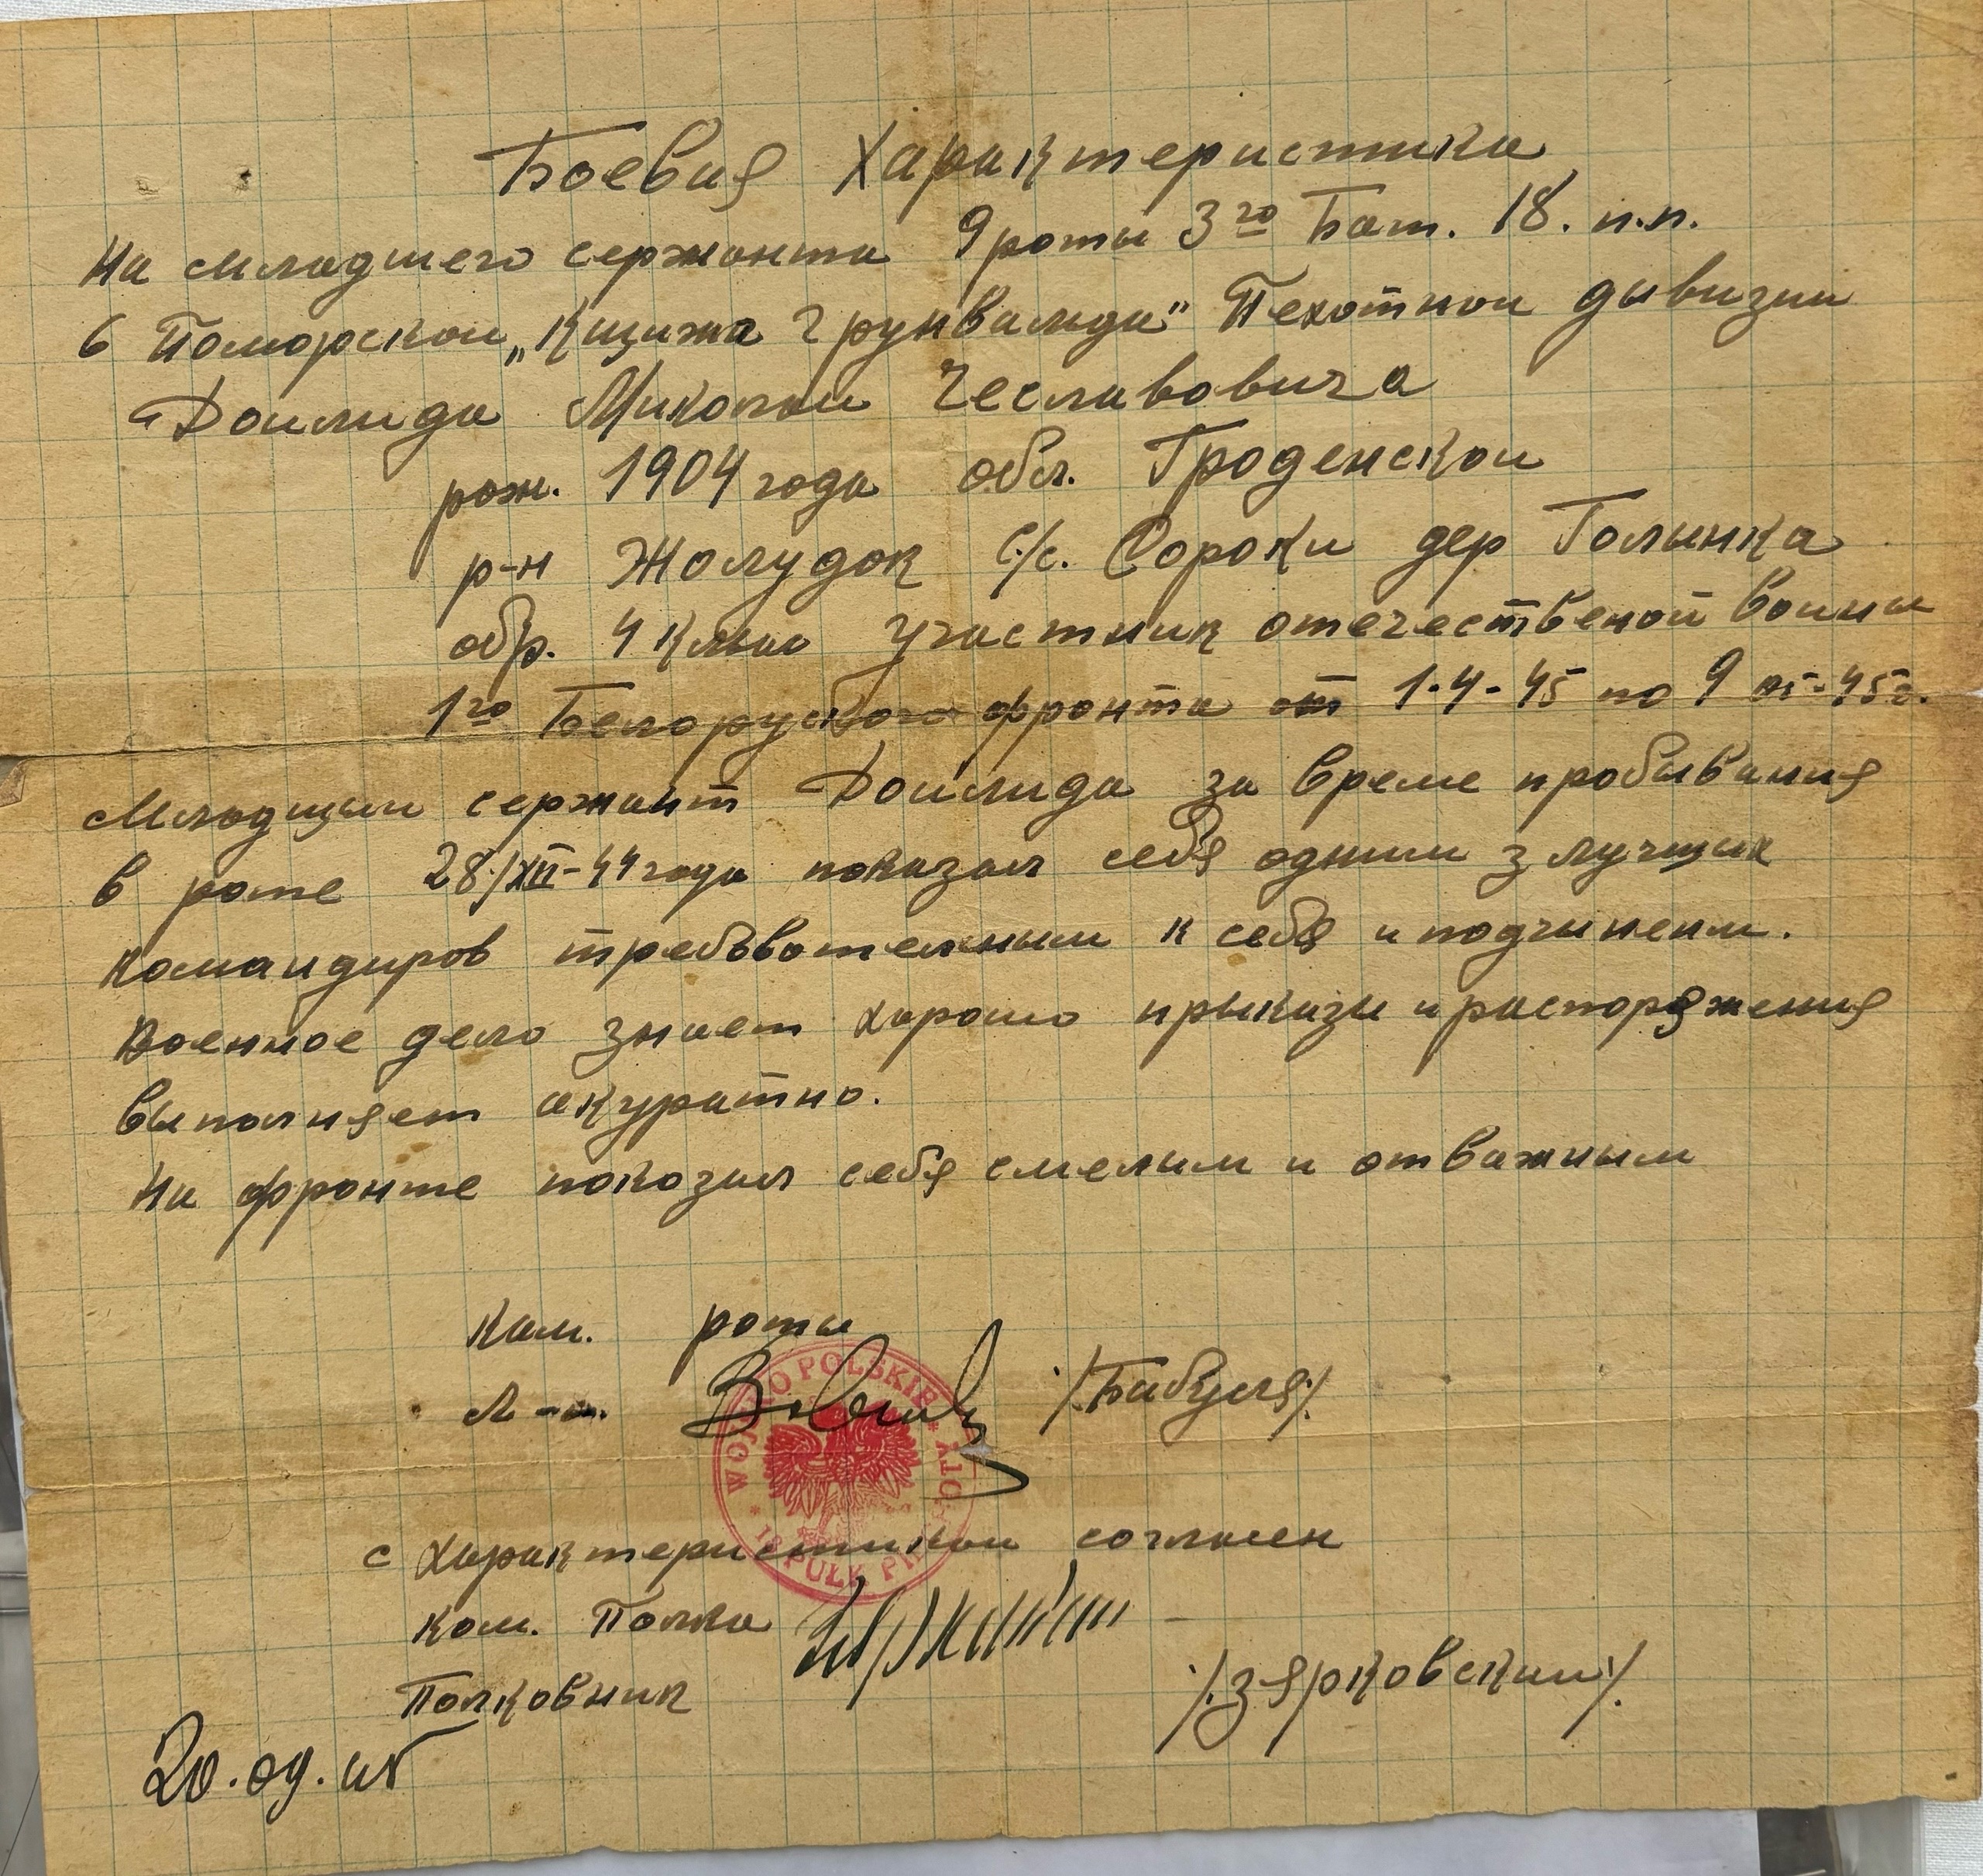 Боевая Характеристика
На младшего сержанта 9 роты 3го Бат. 18. п.п.
6 Поморской „Кщижа Грунвальда" Пехотной дывизии
Доилида Миколаи Чеславовича
рож. 1904 года обл. Гроденской
р-н Жолудок с/с. Сороки дер Голынка
обр. 4 класс Участник отечественой воины
1го Белоруского фронта от 1-4-45 по 9 05-45г.
Младщии сержант Доилида за време пробывания
в роте 28/XII-44 года показал себя одним з лучщих
командиров требовательным к себя и подчиненм.
Военное дело знает хорошо прыкази и распоряжения
выполняет акуратно.
На фронте показал себя смелим и отважным
Ком. роты
Л-т. /.Бабуля/.
WOJSKO POLSKIE
18 PUŁK PIECHOTY
с характеристикои согласен
ком. Полка
Полковник /.Зярковскии/.
20.09.45